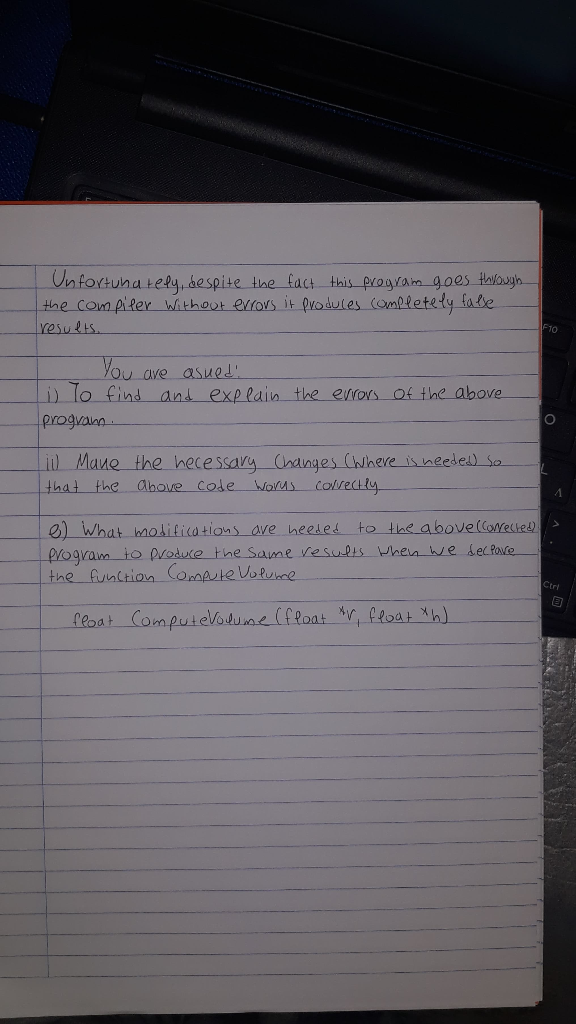 Unfortunately, despite the fact this program goes through
the compiler without errors it produces completely false
results.
You are asked:
i) To find and explain the errors of the above
program.
ii) Make the necessary changes (where is needed) so
that the above code works correctly
e) What modifications are needed to the above (corrected)
program to produce the same results when we declare
the function ComputeVolume
float ComputeVolume (float *r, float *h)
F10
O
L
Λ
>
.
Ctrl